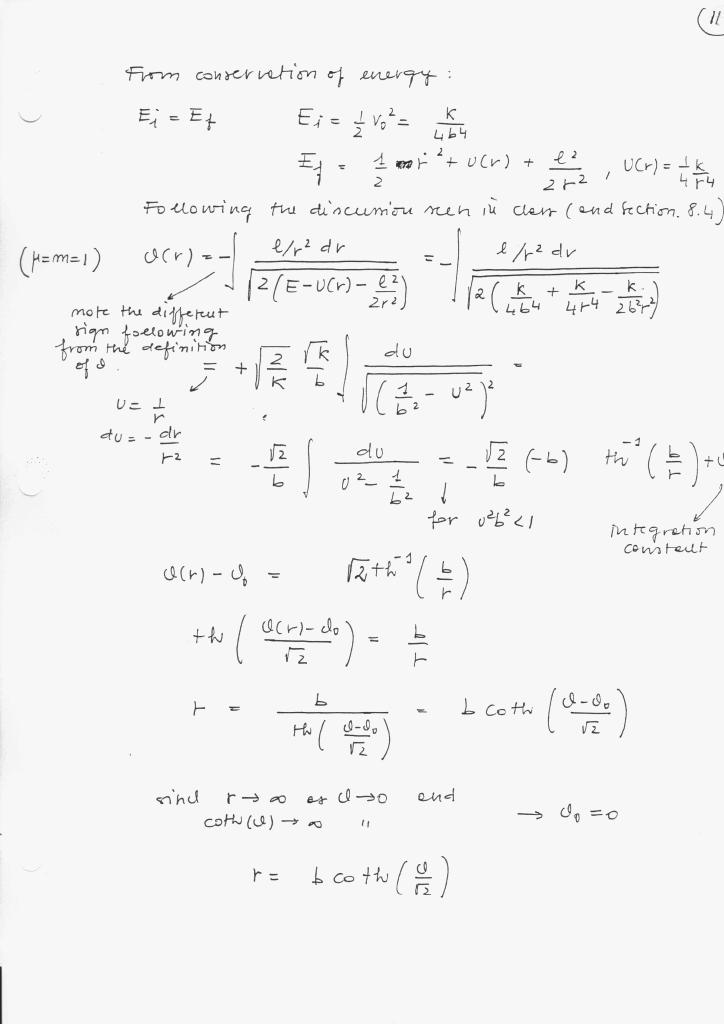 11
From conservation of energy :
E_i = E_f    E_i = 1/2 v_0^2 = k/4b^4
E_f = 1/2 ṙ^2 + U(r) + ℓ^2/2r^2 , U(r) = 1/4 k/r^4
Following the discussion seen in class (and section. 8.4)
(μ=m=1)  ϑ(r) = -∫ ℓ/r^2 dr / √(2(E-U(r)-ℓ^2/2r^2)) = -∫ ℓ/r^2 dr / √(2(k/4b^4 + k/4r^4 - k/2b^2r^2))
note the different
sign following
from the definition
of ϑ.
= +√(2/k) √k/b ∫ du/√((1/b^2 - u^2)^2) =
u = 1/r
du = - dr/r^2
= -√2/b ∫ du/(u^2 - 1/b^2) = -√2/b (-b) th^-1 (b/r) +
for u^2b^2<1
integration
constant
ϑ(r) - ϑ_0 = √2 th^-1 (b/r)
th ((ϑ(r)-ϑ_0)/√2) = b/r
r = b/th((ϑ-ϑ_0)/√2) = b coth ((ϑ-ϑ_0)/√2)
since r→∞ as ϑ→0 and
coth(ϑ)→∞ "    → ϑ_0 = 0
r = b coth (ϑ/√2)